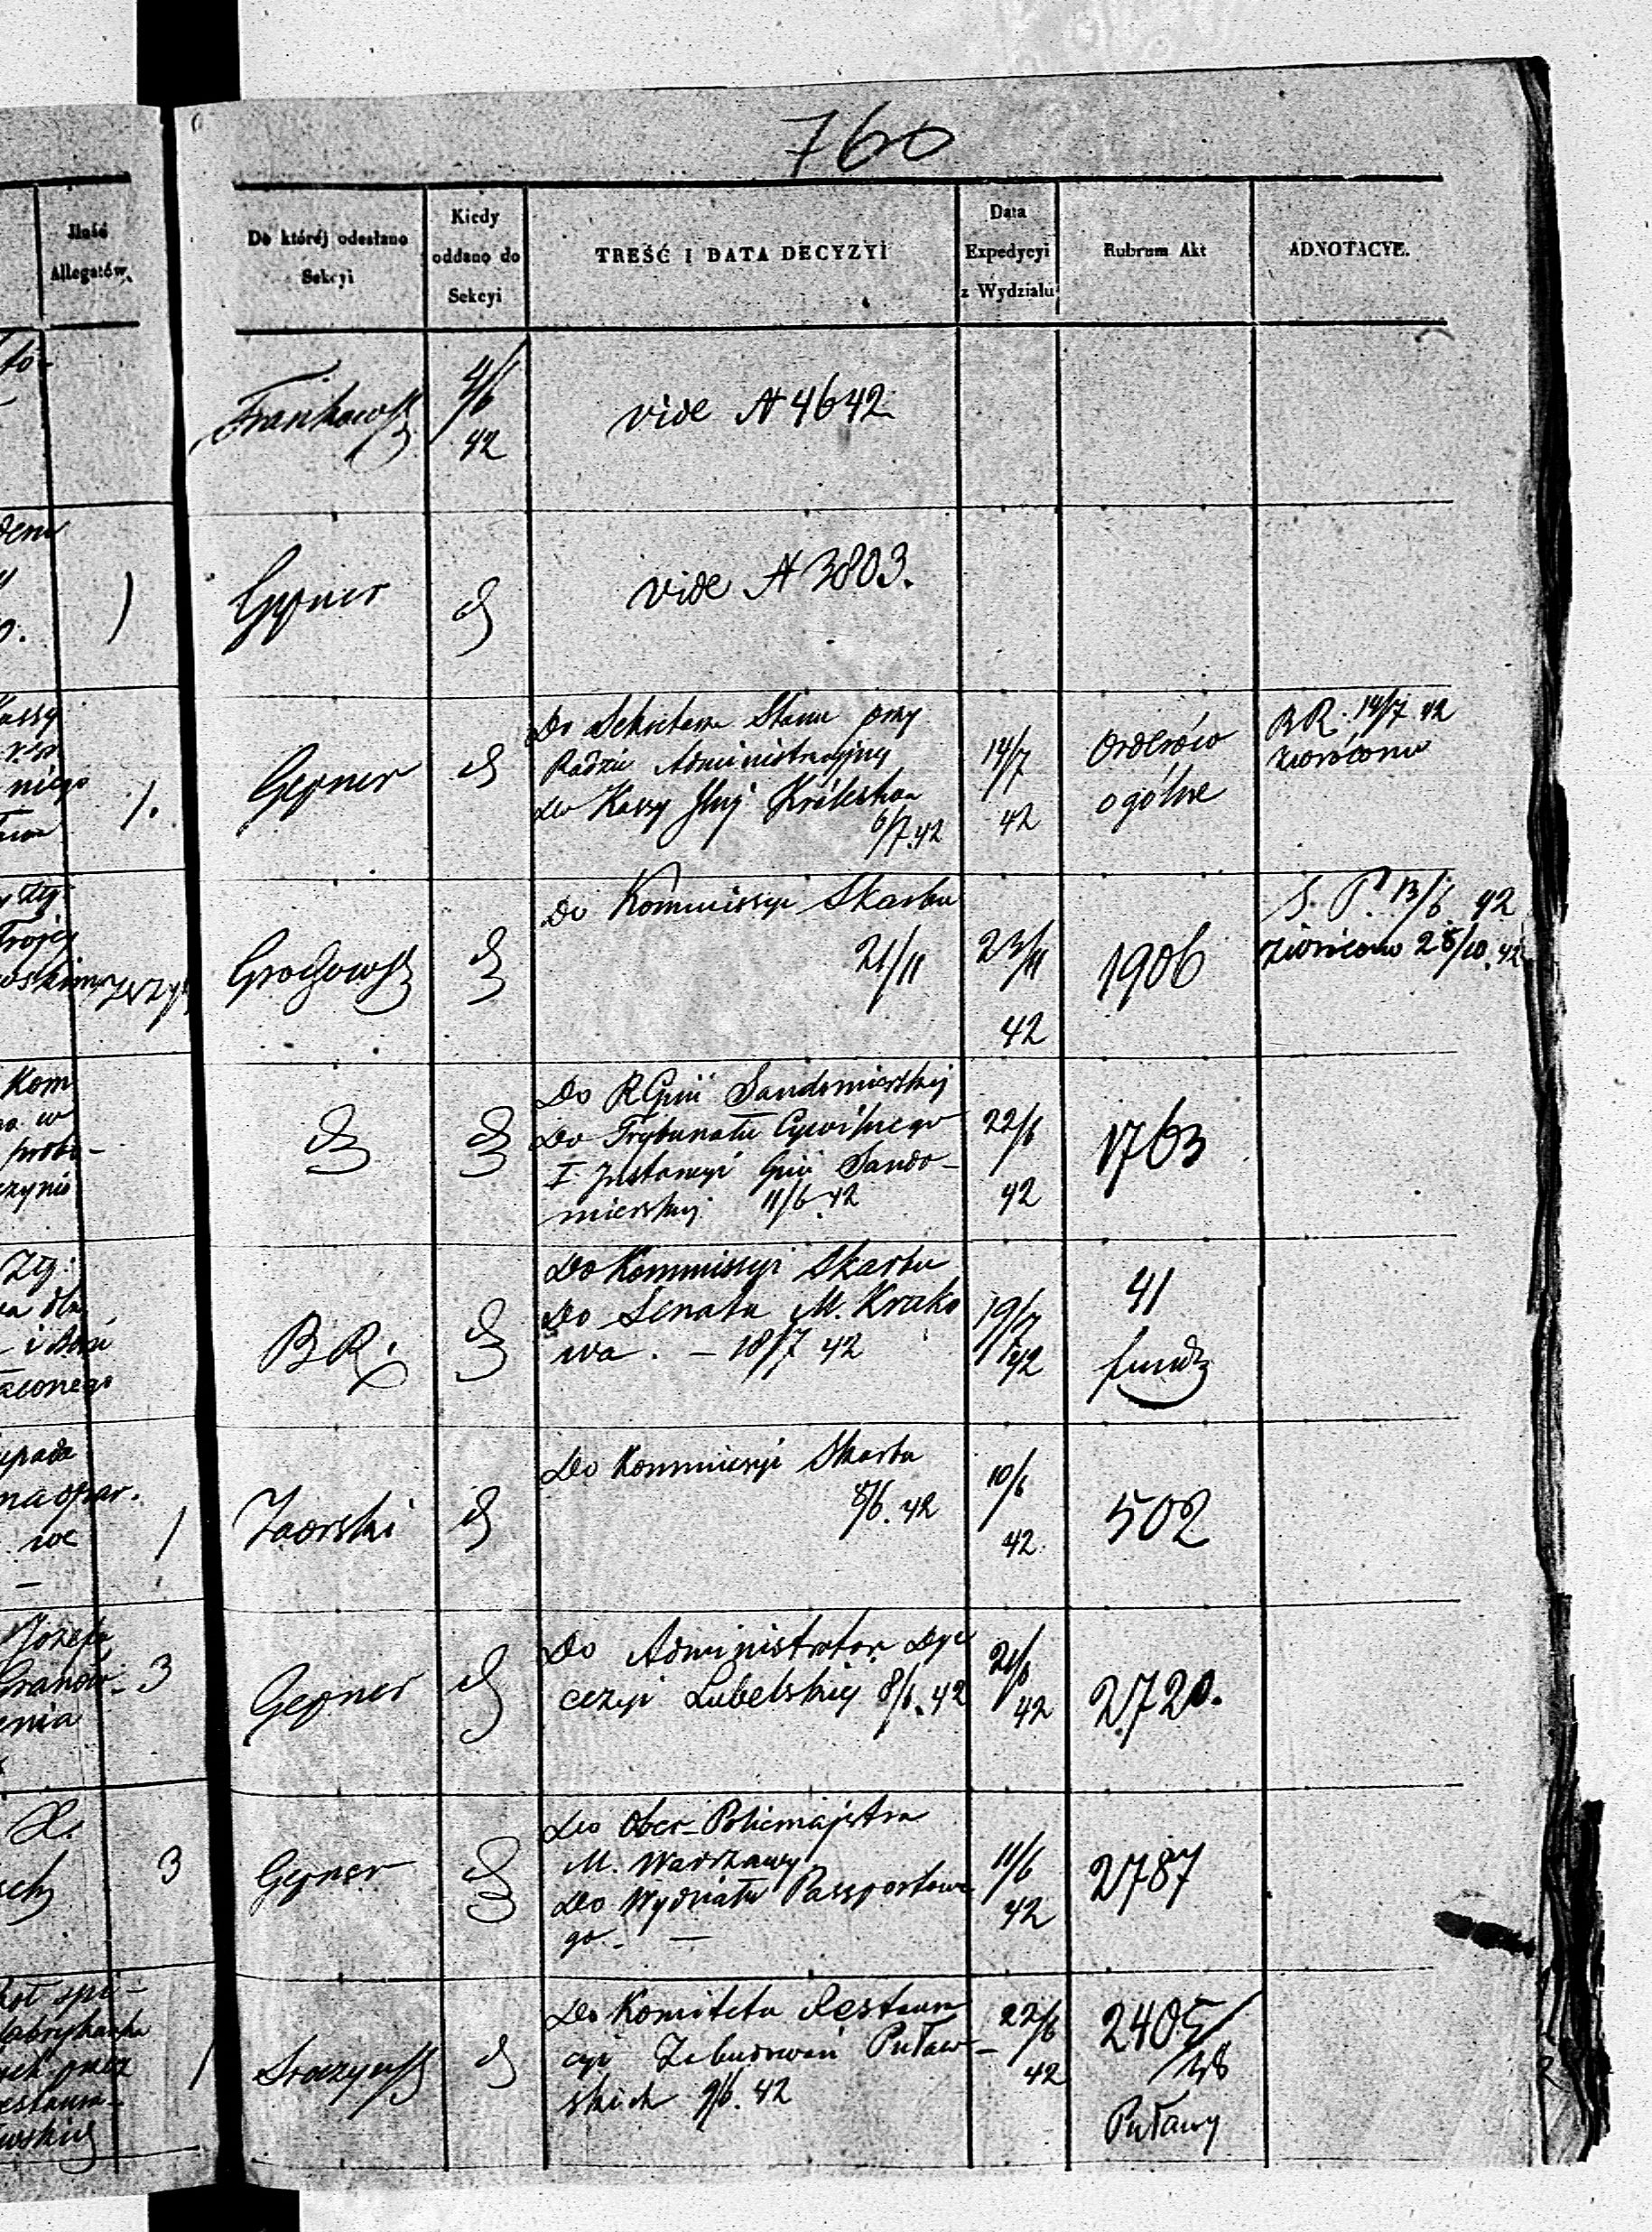 760
Ilość
Allegatów.
Do której odesłano
Sekcyi
Kiedy
oddano do
Sekcyi
TREŚĆ I DATA DECYZYI
Data
Expedycyi
z Wydziału
Rubrum Akt
ADNOTACYE.
4/6
42
vide N 4642
Gepner
vide N 3803.
niego
Gepner
Do Sekretarza Stanu przy
Radzie Administracyjnej
do Kassy Głnj Królestwa
6/7.42
14/7
42
Orderów
ogólne
B R. 14/7 42
zwrócono
Grochowsk
Do Kommissyi Skarbu
21/11
23/11
42
1906
S. P. 13/6 42
zwrócono 28/10.42
Kom
w
Do RGnii Sandomierskiej
Do Trybunału Cywilnego
I Instancyi Gnii Sando-
mierskiej 11/6.42
22/6
42
1763
B R.
Do Kommissyi Skarbu
Do Senatu M. Krako
wa. – 18/7 42
19/7
42
41
fundz
1
Zaorski
Do Kommissyi Skarbu
8/6.42
10/6
42
502
Józefa
3
Gepner
Do Administratora Dye
cezyi Lubelskiej 8/6.42
21/6
42
2720.
3
Gepner
Do Ober-Policmajstra
M. Warszawy
Do Wydziału Passportowe
go. –
11/6
42
2787
1
Do Komitetu Restaura
cyi Zabudowań Puław-
skich 9/6.42
22/6
42
2405/
38
Puławy